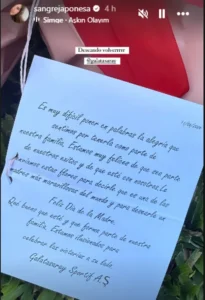 sangrejaponesa 4 h
Simge - Aşkın Olayım
Deseando volverrrrr
@galatasaray
Es muy difícil poner en palabras la alegría que
sentimos por tenerla como parte de
nuestra familia. Estamos muy felices de que sea parte
de nuestros éxitos y de que esté con nosotros. Le
enviamos estas flores para decirle que es una de las
madres más maravillosas del mundo y para desearle un
Feliz Día de la Madre.
Qué bueno que esté y que forme parte de nuestra
familia. Estamos ilusionados para
celebrar las victorias a su lado
Galatasaray Sportif A.Ş